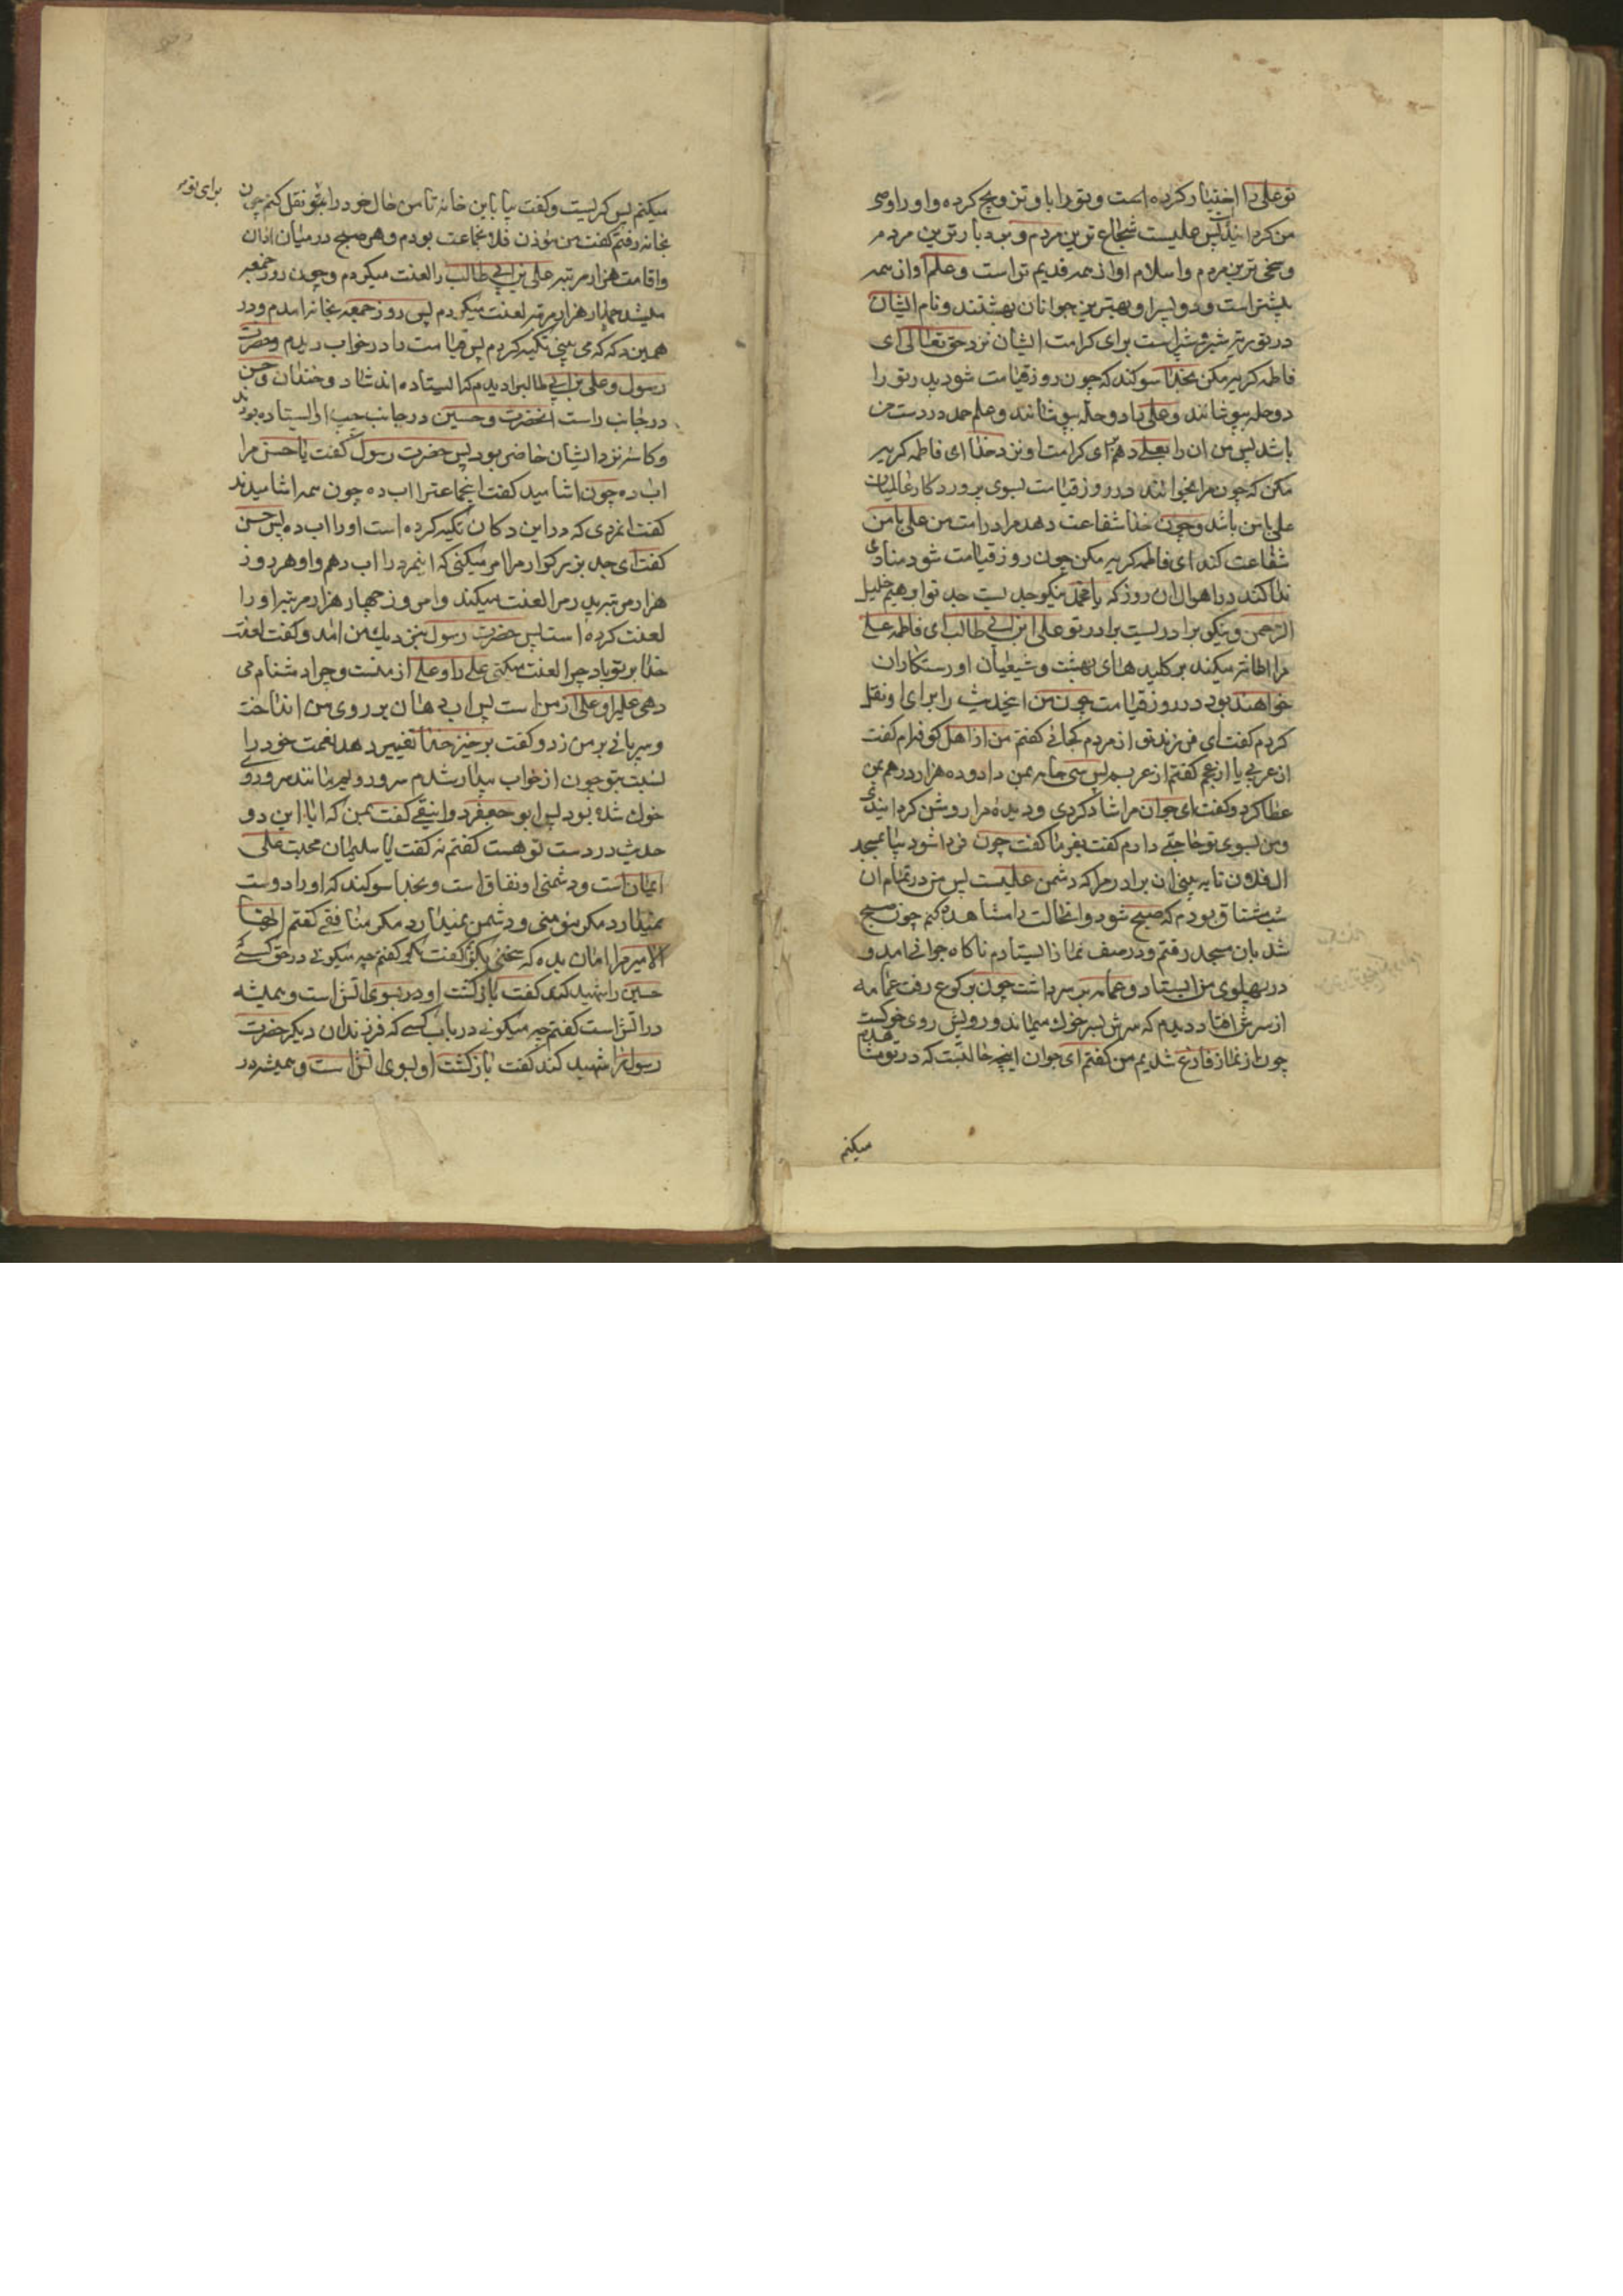 تو علی را اختیار کرده است و تو را باو تزویج کرده و او را وصی
من کردانید پس علیست شجاع ترین مردم و بردبار ترین مردم
و سخی ترین مردم و اسلام او از همه قدیم تر است و علم او از همه
بیشتر است و دو پسر او بهترین جوانان بهشتند و نام ایشان
در توریة شبر و شبیر است برای کرامت ایشان نزد حق تعالی ای
فاطمه کریه مکن بخدا سوکند که چون روز قیامت شود پدر تو را
دو حله بپوشانند و علی را دو حله بپوشانند و علم حمد در دست من
باشد پس من آن را بعلی دهم برای کرامت او نزد خدا ای فاطمه کریه
مکن که چون مرا بخوانند در روز قیامت بسوی پروردکار عالمیان
علی با من باشد و چون خدا شفاعت دهد مرا در امت من علی با من
شفاعت کند ای فاطمه کریه مکن چون روز قیامت شود منادی
ندا کند در اهوال آن روز که یا محمد نیکو جدیست جد تو ابرهیم خلیل
الرحمن و نیکو برادریست برادر تو علی ابن ابی طالب ای فاطمه علی
مرا اعانة میکند بر کلید های بهشت و شیعیان او رستکاران
خواهند بود در روز قیامت چون من اینحدیث را برای او نقل
کردم کفت ای فرزند تو از مردم کجائی کفتم من از اهل کوفه ام کفت
از عربی یا از عجم کفتم از عربم پس سی جامه بمن داد و ده هزار درهم بمن
عطا کرد و کفت ای جوان مرا شاد کردی و دیده مرا روشن کردانیدی
و من بسوی تو حاجتی دارم کفت بفرما کفت چون فردا شود بیا بمسجد
ال فلان تا به بینی آن برادر مرا که دشمن علیست پس من در تمام آن
شب مشتاق بودم که صبح شود و انحالت را مشاهده کنم چون صبح
شد بان مسجد رفتم و در صف نماز ایستادم ناکاه جوانی امد و
در پهلوی من ایستاد و عمامه بر سر داشت چون برکوع رفت عمامه
از سرش افتاد دیدم که سرش بسر خوک میماند و رویش روی خوکست
چون از نماز فارغ شدیم من کفتم ای جوان اینچه حالتیست که در تو مشاهده
میکنم
میکنم پس کریست و کفت بیا باین خانه تا من حال خود را بتو نقل کنم چون
برای تو
بخانه رفتم کفت من مؤذن فلان جماعت بودم و هر صبح در میان اذان
و اقامت هزار مرتبه علی بن ابی طالب را لعنت میکردم و چون روز جمعه
میشد چهار هزار مرتبه لعنت میکردم پس روز جمعه بخانه امدم و در
همین دکه که می بینی تکیه کردم پس قیامت را در خواب دیدم و حضرت
رسول و علی بن ابی طالب را دیدم که ایستاده اند شاد و خندان و حسن
در جانب راست انحضرت و حسین در جانب چپ او ایستاده بودند
و کاسه نزد ایشان حاضر بود پس حضرت رسول کفت یا حسن مرا
اب ده چون اشامید کفت اینجماعترا اب ده چون همه اشامیدند
کفت انمردی که در این دکان تکیه کرده است او را اب ده پس حسن
کفت ای جد بزرکوار مرا امر میکنی که اینمرد را اب دهم و او هر روز
هزار مرتبه پدر مرا لعنت میکند و امروز چهار هزار مرتبه او را
لعنت کرده است پس حضرت رسول بنزدیک من امد و کفت لعنت
خدا بر تو باد چرا لعنت میکنی علی را و علی از منست و چرا دشنام می
دهی علیرا و علی از من است پس اب دهان بر روی من انداخت
و سر پائی بر من زد و کفت برخیز خدا تغییر دهد نعمت خود را
نسبت بتو چون از خواب بیدار شدم سر و رویم مانند سر و روی
خوک شده بود پس ابو جعفر دوانیقی کفت بمن که ایا این دو
حدیث در دست تو هست کفتم نه کفت یا سلیمان محبت علی
ایمان است و دشمنی او نفاق است و بخدا سوکند که او را دوست
نمیدارد مکر مؤمنی و دشمن نمیدارد مکر منافقی کفتم ایها
الامیر مرا امان بده که سخنی بکویم کفت بکو کفتم چه میکوئی در حق کسی
حسین را شهید کند کفت بازکشت او در بسوی اتش است و همیشه
در اتش است کفتم چه میکوئی در باب کسی که فرزندان دیکر حضرت
رسول را شهید کند کفت بازکشت او بسوی اتش است و همیشه در